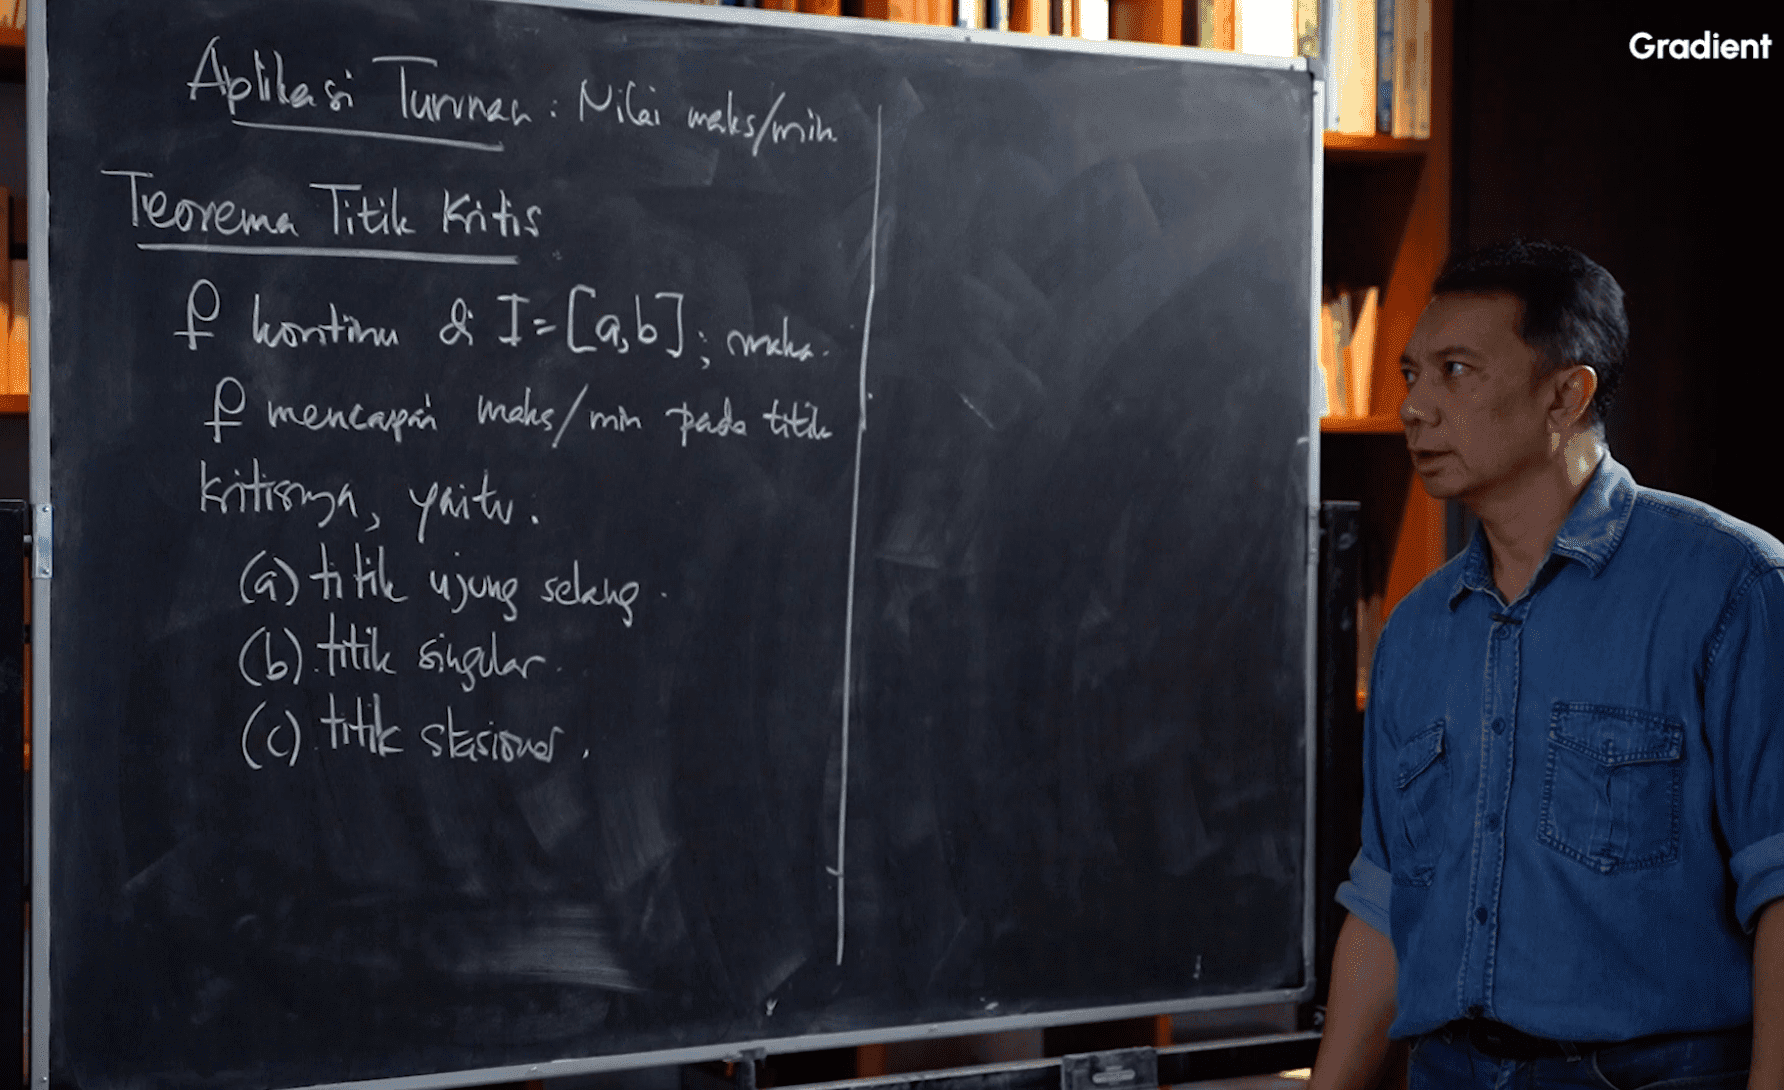 Aplikasi Turunan : Nilai maks/min.
Teorema Titik Kritis
f kontinu di I = [a,b] ; maka.
f mencapai maks/min pada titik
kritisnya, yaitu :
(a) titik ujung selang.
(b). titik singular.
(c). titik stasioner.
Gradient